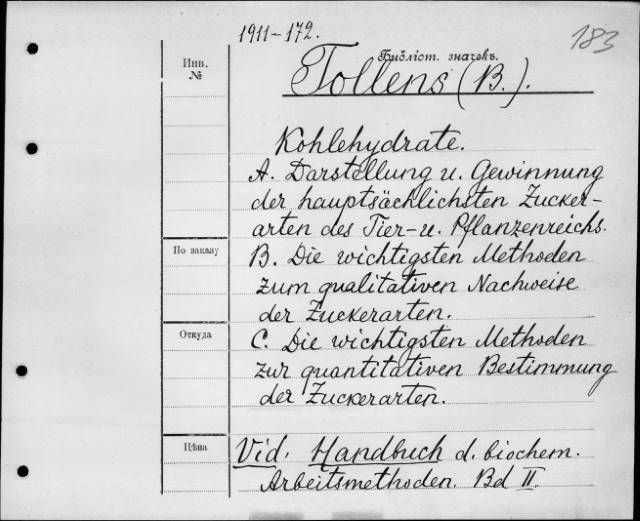 1911-172.
183
Инв.
№
Библіот. значекъ.
Tollens (B.).
Kohlehydrate.
A. Darstellung u. Gewinnung
der hauptsächlichsten Zucker-
arten des Tier- u. Pflanzenreichs.
По заказу
B. Die wichtigsten Methoden
zum qualitativen Nachweise
der Zuckerarten.
Откуда
C. Die wichtigsten Methoden
zur quantitativen Bestimmung
der Zuckerarten.
Цѣна
Vid. Handbuch d. biochem.
Arbeitsmethoden. Bd II.